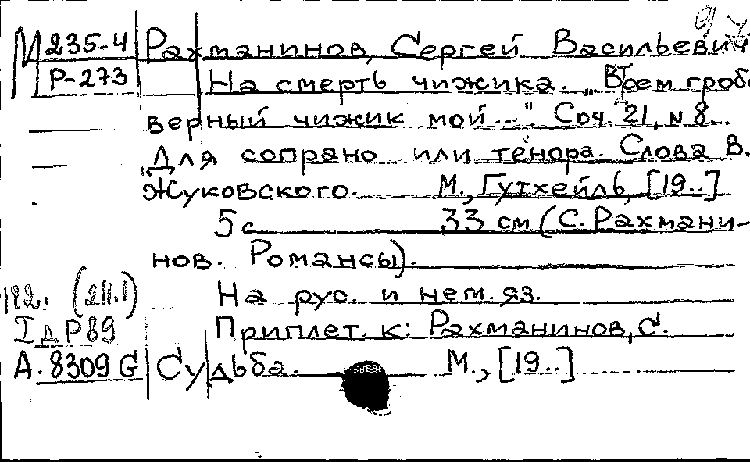 М 235-4 Рахманинов, Сергей Васильевич
Р-273 На смерть чижика. "В сем гроб
верный чижик мой..." Соч. 21, N 8.
Для сопрано или тенора. Слова В.
Жуковского. М., Гутхейль, [19..]
5 с 33 см (С. Рахмани-
нов. Романсы).
На рус. и нем. яз.
I д Р 89 Приплет. к: Рахманинов, С.
А. 8309 G Судьба. М., [19..]